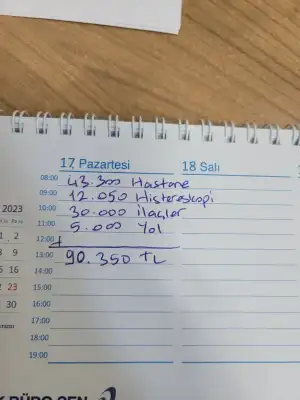 17 Pazartesi
18 Salı
08:00 43.300 Hastane
09:00 12.050 Histereskopi
10:00 30.000 ilaçlar
11:00 5.000 Yol
12:00 +
13:00 90.350 TL
14:00
15:00
16:00
17:00
18:00
19:00
2023
1 2
8 9
15 16
22 23
30